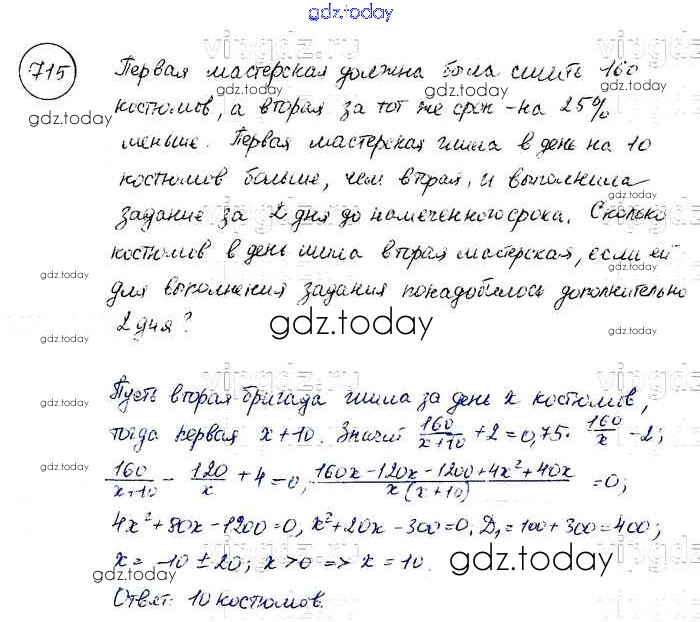 gdz.today
715
Первая мастерская должна была сшить 160
костюмов, а вторая за тот же срок - на 25%
меньше. Первая мастерская шила в день на 10
костюмов больше, чем вторая, и выполнила
задание за 2 дня до намеченного срока. Сколько
костюмов в день шила вторая мастерская, если ей
для выполнения задания понадобилось дополнительно
2 дня?
gdz.today
Пусть вторая бригада шила за день x костюмов,
тогда первая x+10. Значит 160/(x+10) + 2 = 0,75 · 160/x - 2;
160/(x+10) - 120/x + 4 = 0, (160x - 120x - 1200 + 4x² + 40x)/(x(x+10)) = 0;
4x² + 80x - 1200 = 0, x² + 20x - 300 = 0. D₁ = 100 + 300 = 400;
x = -10 ± 20; x > 0 => x = 10.
Ответ: 10 костюмов.
gdz.today